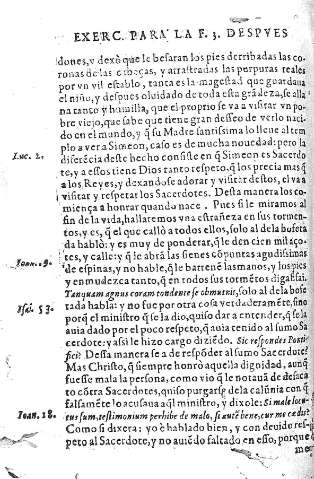 EXERC. PARA LA F. 3. DESPVES
dones, y dexò que le besaran los pies derribadas las co-
ronas de las cabeças, y arrastradas las purpuras reales
por vn vil establo, tanta es la magestad que guardaua
el niño, y despues oluidado de toda esta grãdeza, se alla
na tanto y humilla, que el proprio se va a visitar vn po-
bre viejo, que sabe que tiene gran desseo de verlo naci-
do en el mundo, y q̃ su Madre santissima lo lleue al tem
plo a ver a Simeon, caso es de mucha nouedad: pero la
Luc. 2.
diferẽcia deste hecho consiste en q̃ Simeon es Sacerdo-
te, y a essos tiene Dios tanto respeto, q̃ los precia mas q̃
a los Reyes, y dexandose adorar y visitar destos, el va a
visitar y respetar los Sacerdotes. Desta manera los co-
miença a honrar quando nace. Pues si le miramos al
fin de la vida, hallaremos vna estrañeza en sus tormen-
tos, y es, q̃ el que callò a todos ellos, solo al de la bofeta
da hablò: y es muy de ponderar, q̃ le den cien mil aço-
Ioan. 19.
tes, y calle: y q̃ le abrã las sienes cõ puntas agudissimas
de espinas, y no hable, q̃ le barrenẽ las manos, y los pies
y enmudezca tanto, q̃ en todos sus tormẽtos digã Isai.
Isai. 53.
Tanquam agnus coram tondente se obmutuit, solo al de la bofe
tada hablò: y no fue por otra cosa verdaderamẽte, sino
porq̃ el ministro q̃ se la dio, quiso dar a entender, q̃ se la
auia dado por el poco respeto, q̃ auia tenido al sumo Sa
cerdote: y assi le hizo cargo diziẽdo. Sic respondes Ponti-
fici? Dessa manera se a de respõder al sumo Sacerdote?
Mas Christo, q̃ siempre honrò aquella dignidad, aunq̃
fuesse mala la persona, como vio q̃ le notauã de desaca
to cõtra Sacerdotes, quiso purgarse de la calũnia con q̃
falsamẽte lo acusaua aq̃l ministro, y dixole: Si male locu-
Ioan. 18.
tus sum, testimonium perhibe de malo, si autẽ bene, cur me cædis?
Como si dixera: yo è hablado bien, y con deuido res-
peto al Sacerdote, y no auiẽdo faltado en esso, porque
me